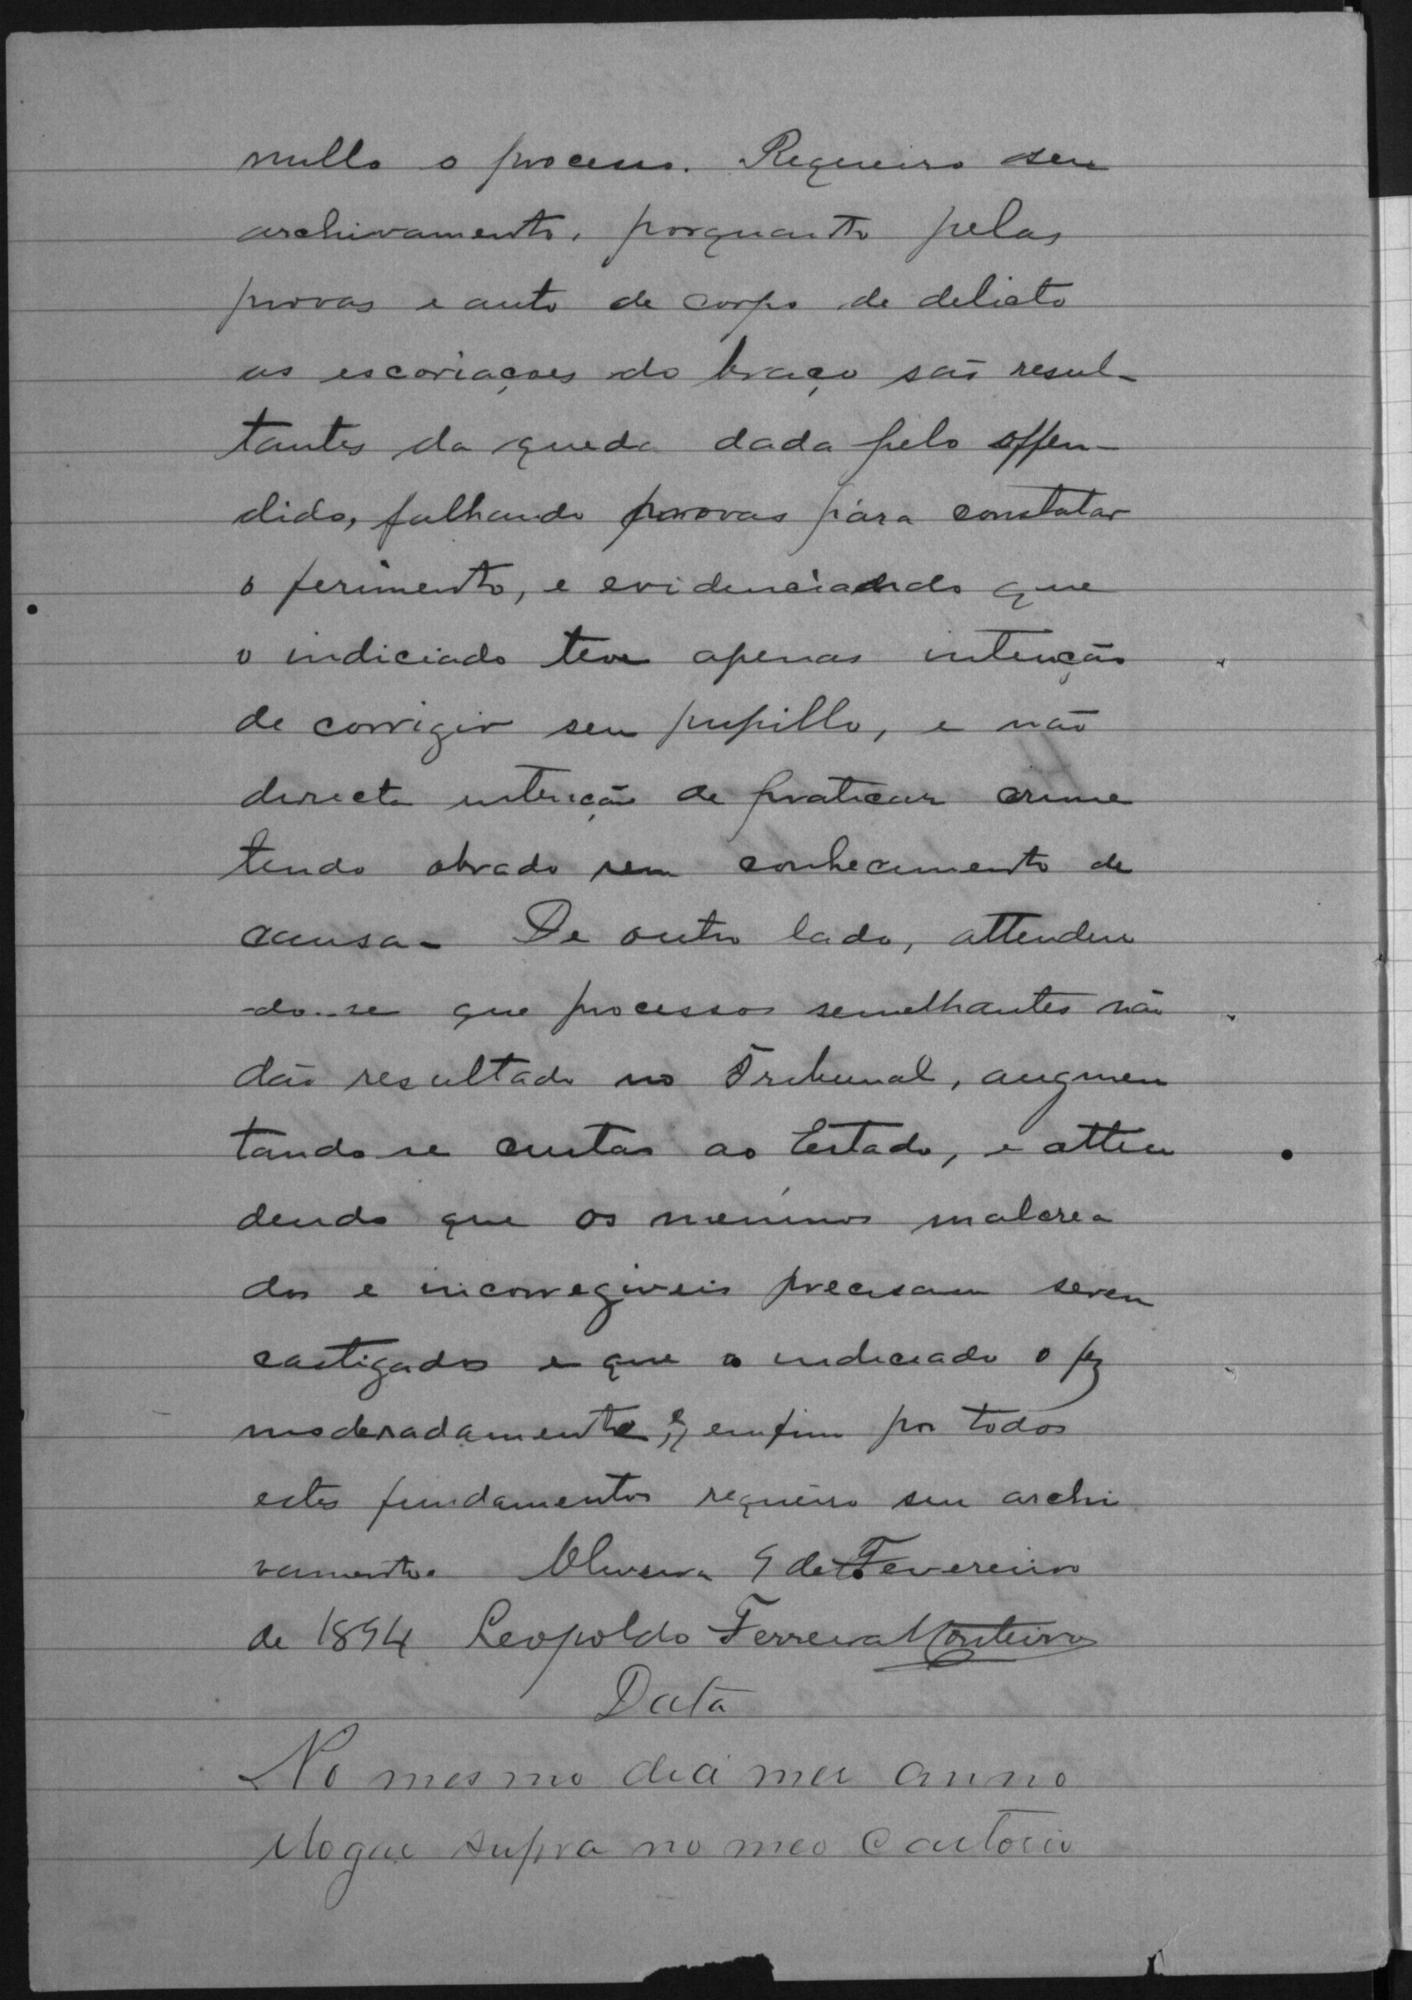 nullo o processo. Requeiro seu
archivamento, porquanto pelas
provas e auto de corpo de delicto
as escoriaçoes do braço são resul-
tantes da queda dada pelo offen-
dido, falhando provas pára constatar
o ferimento, e evidenciando que
o indiciado teve apenas intenção
de corrigir seu pupillo, e não
directa intenção de praticar crime
tendo obrado sem conhecimento de
causa- De outro lado, attenden
-do-se que processos semelhantes não
dão resultado no Tribunal, augmen
tando se custas ao Estado, e atten
dendo que os meninos malcrea
dos e incorregiveis precisam serem
castigados e que o indiciado o fez
moderadamente, e, emfim por todos
estes fundamentos requeiro seu archi
vamento. Oliveira 9 de Fevereiro
de 1894 Leopoldo Ferreira Monteiro
Data
No mesmo dia mez anno
supra no meo Cartorio